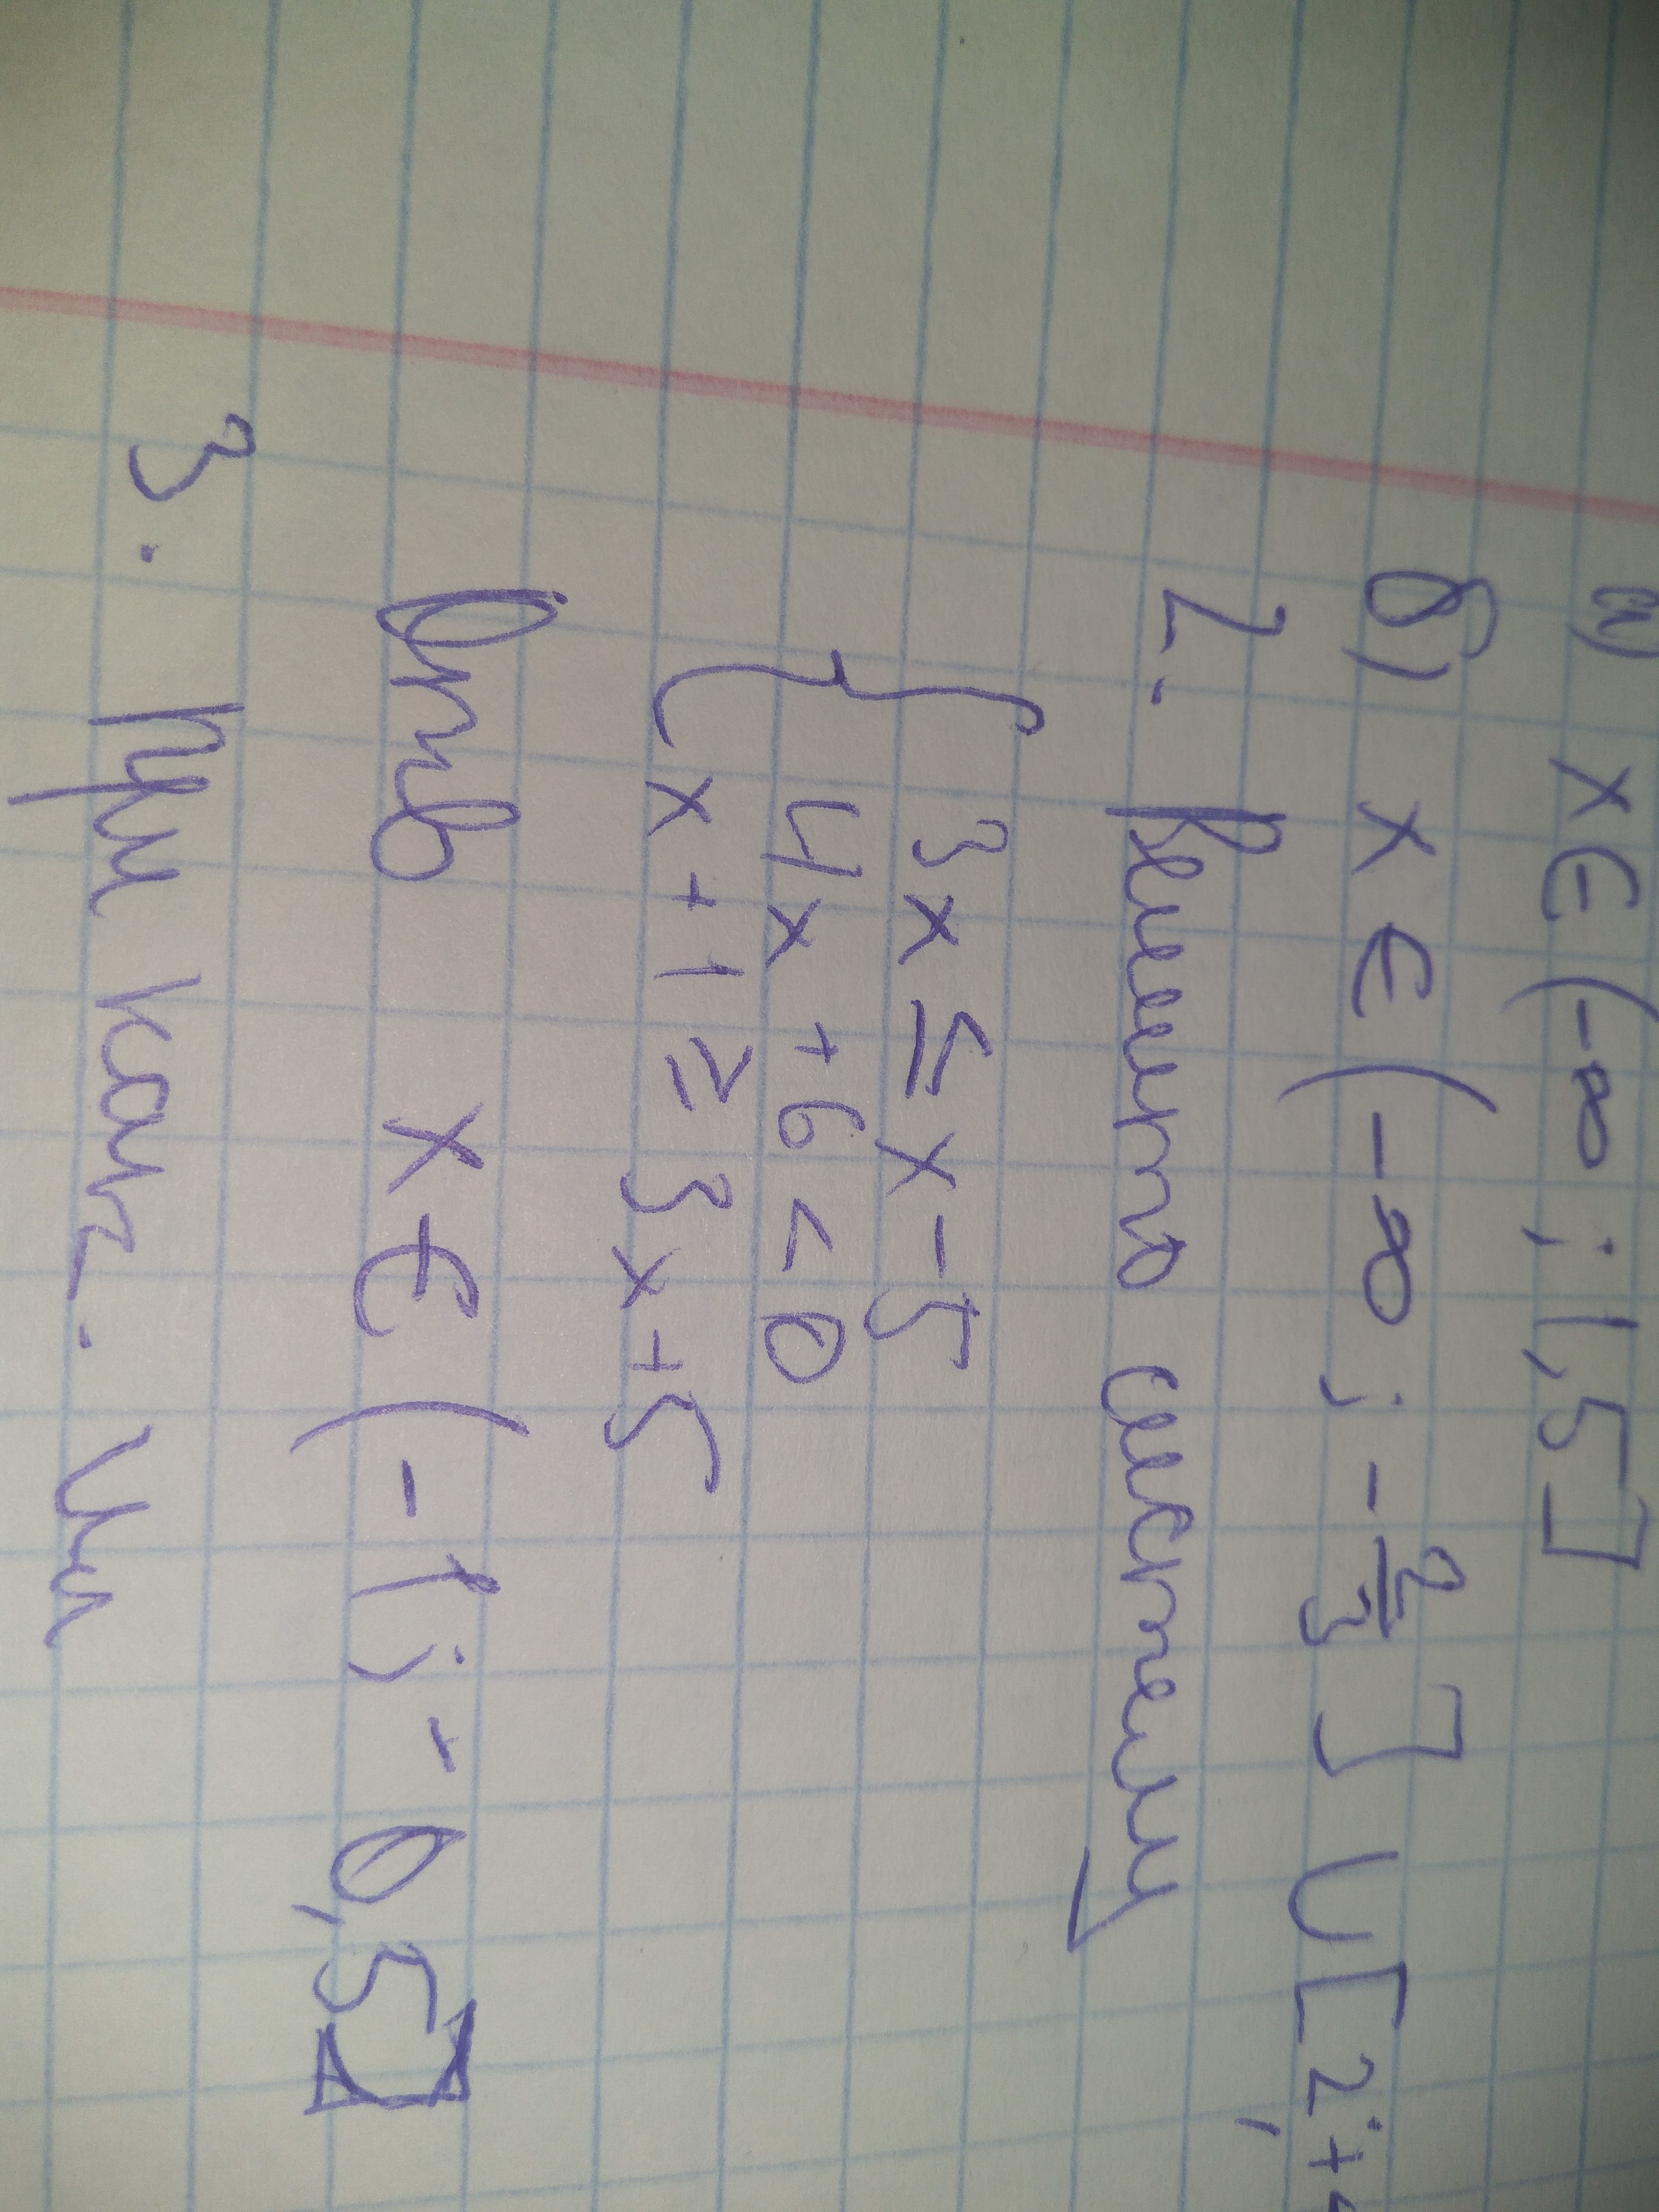 а) x ∈ (-∞ ; 1,5]
б) x ∈ (-∞ ; -2/3] ∪ [2 ; +
2. Решите систему
{ 3x ≤ x - 5
4x + 6 < 0
x + 1 ≥ 3x + 5
Отв x ∈ (-1 ; - 0,5]
3. При как.